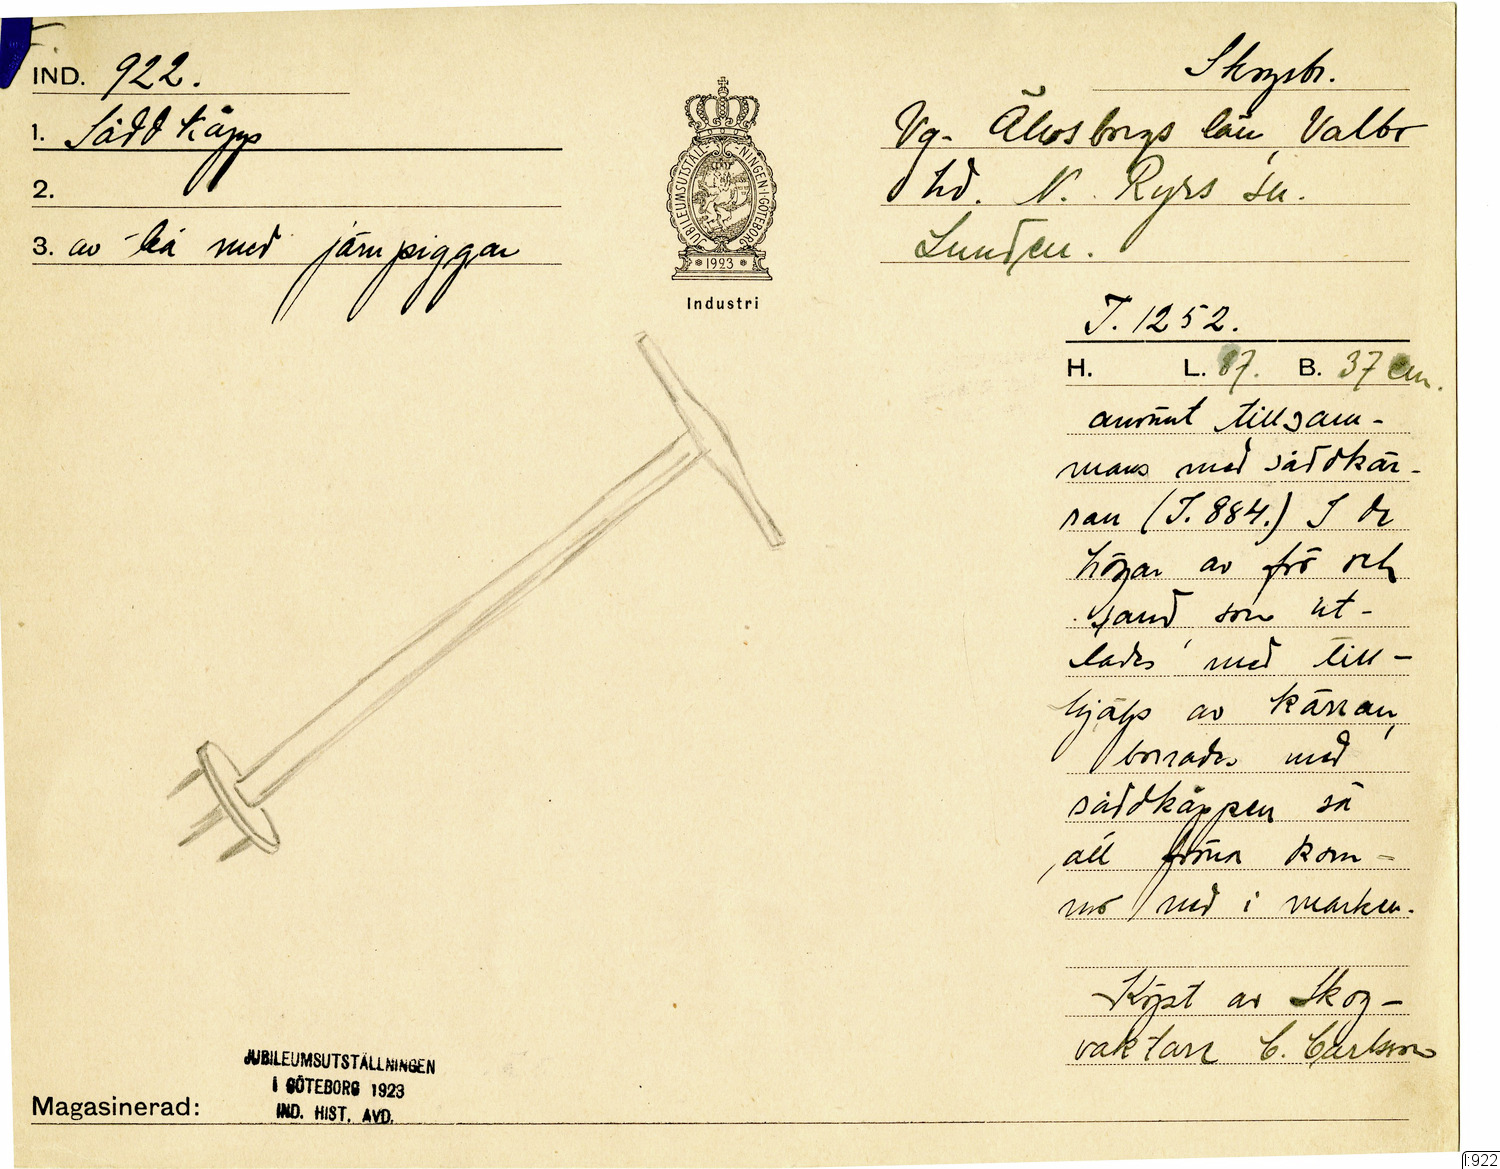 IND. 922.
1. Sådd käpp
2.
3. av trä med järnpiggar
JUBILEUMSUTSTÄLL-NINGEN I GÖTEBORG
1923
Industri
Skogsbr.
Vg. Älvsborgs län, Valbo
hd. N. Ryrs sn.
Lunden.
J. 1252.
H. L. 87. B. 37 cm.
använt tillsam-
mans med såddkär-
ran (J. 884.) I de
högar av frö och
sand, som ut-
lades med till-
hjälp av kärran,
borrades med
såddkäppen så
att fröna kom-
mo ned i marken.
Köpt av Skog-
vaktare C. Carlsson
JUBILEUMSUTSTÄLLNINGEN
I GÖTEBORG 1923
IND. HIST. AVD.
Magasinerad:
I:922